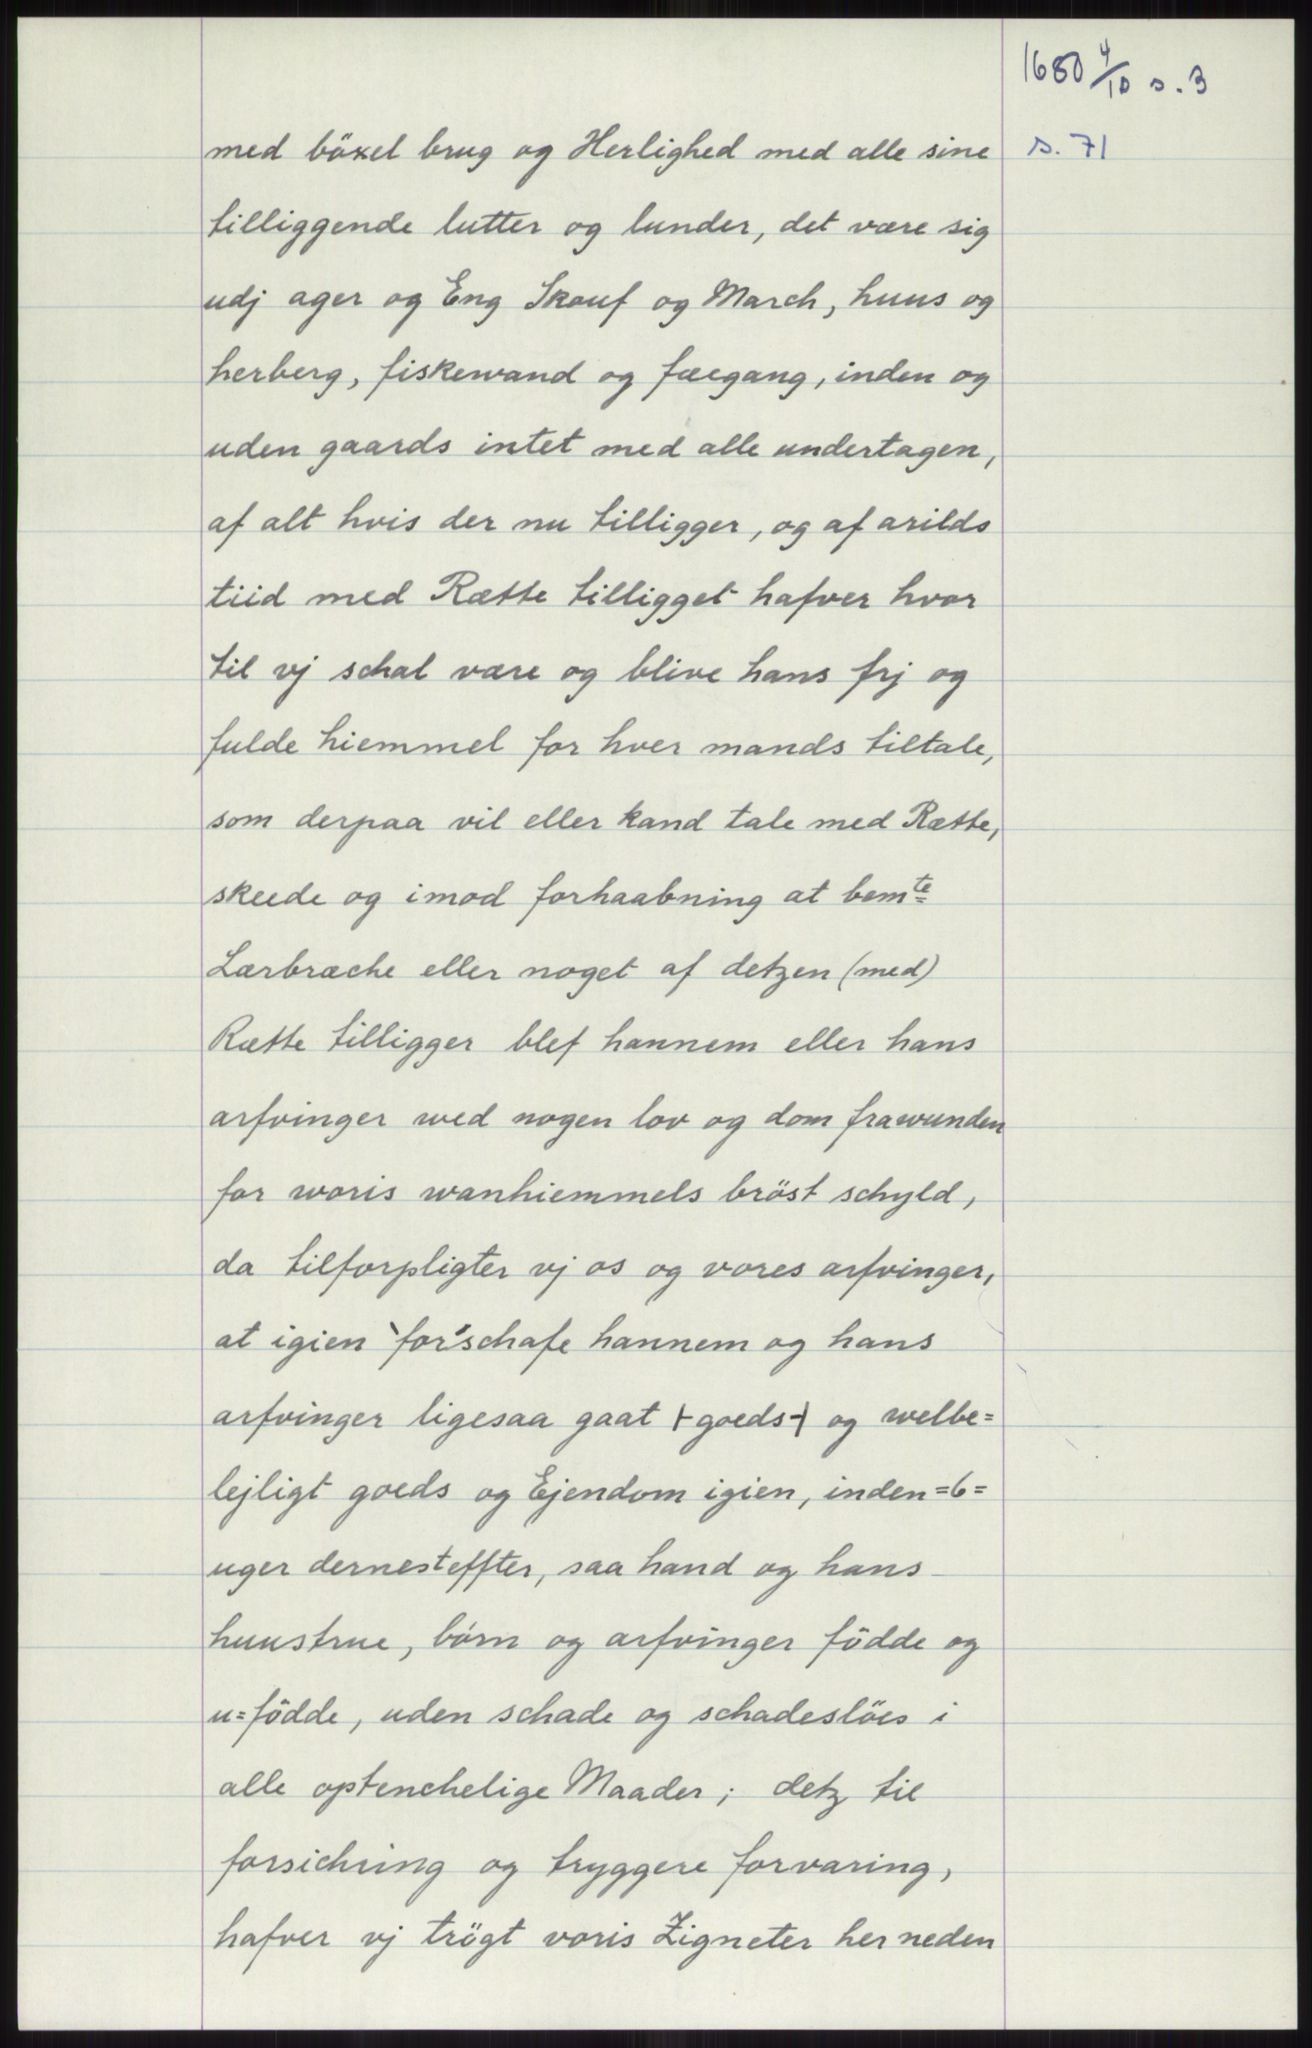 1680 4/10 s. 3
s. 71
med böxel brug og Herlighed med alle sine
tilliggende lutter og lunder, det være sig
udj ager og Eng Skouf og March, huus og
herberg, fiskewand og fæegang, inden og
uden gaards intet med alle undertagen,
af alt hvis der nu tilligger, og af arilds
tiid med Rætte tilligget hafver hvor
til vj schal være og blive hans frj og
fulde hiemmel for hver mands tiltale,
som derpaa vil eller kand tale med Rætte,
skeede og imod forhaabning at bemte
Lærbræche eller noget af detzen (med)
Rætte tilligger blef hannem eller hans
arfvinger wed nogen lov og dom frawunden
for woris wanhiemmels bröst schyld,
da tilforpligter vj os og vores arfvinger,
at igien `for´schafe hannem og hans
arfvinger ligesaa gaat |-goeds-| og welbe=
lejligt goeds og Ejendom igien, inden =6=
uger dernesteffter, saa hand og hans
huustrue, börn og arfvinger födde og
u=födde, uden schade og schadeslöes i
alle optenchelige Maader; detz til
forsichring og tryggere forvaring,
hafver vj trögt voris Zigneter her neden